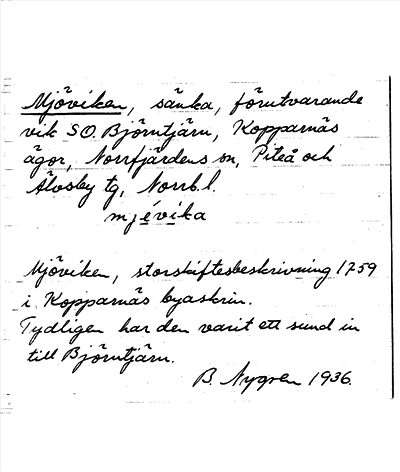 Mjöviken, sänka, förutvarande
vik SO. Björntjärn, Kopparnäs
ägor, Norrfjärdens sn, Piteå och
Älvsby tg, Norrb. l.
mjévika
Mjöviken, storskiftesbeskrivning 1759
i Kopparnäs byaskrin.
Tydligen har den varit ett sund in
till Björntjärn.
B. Nygren 1936.